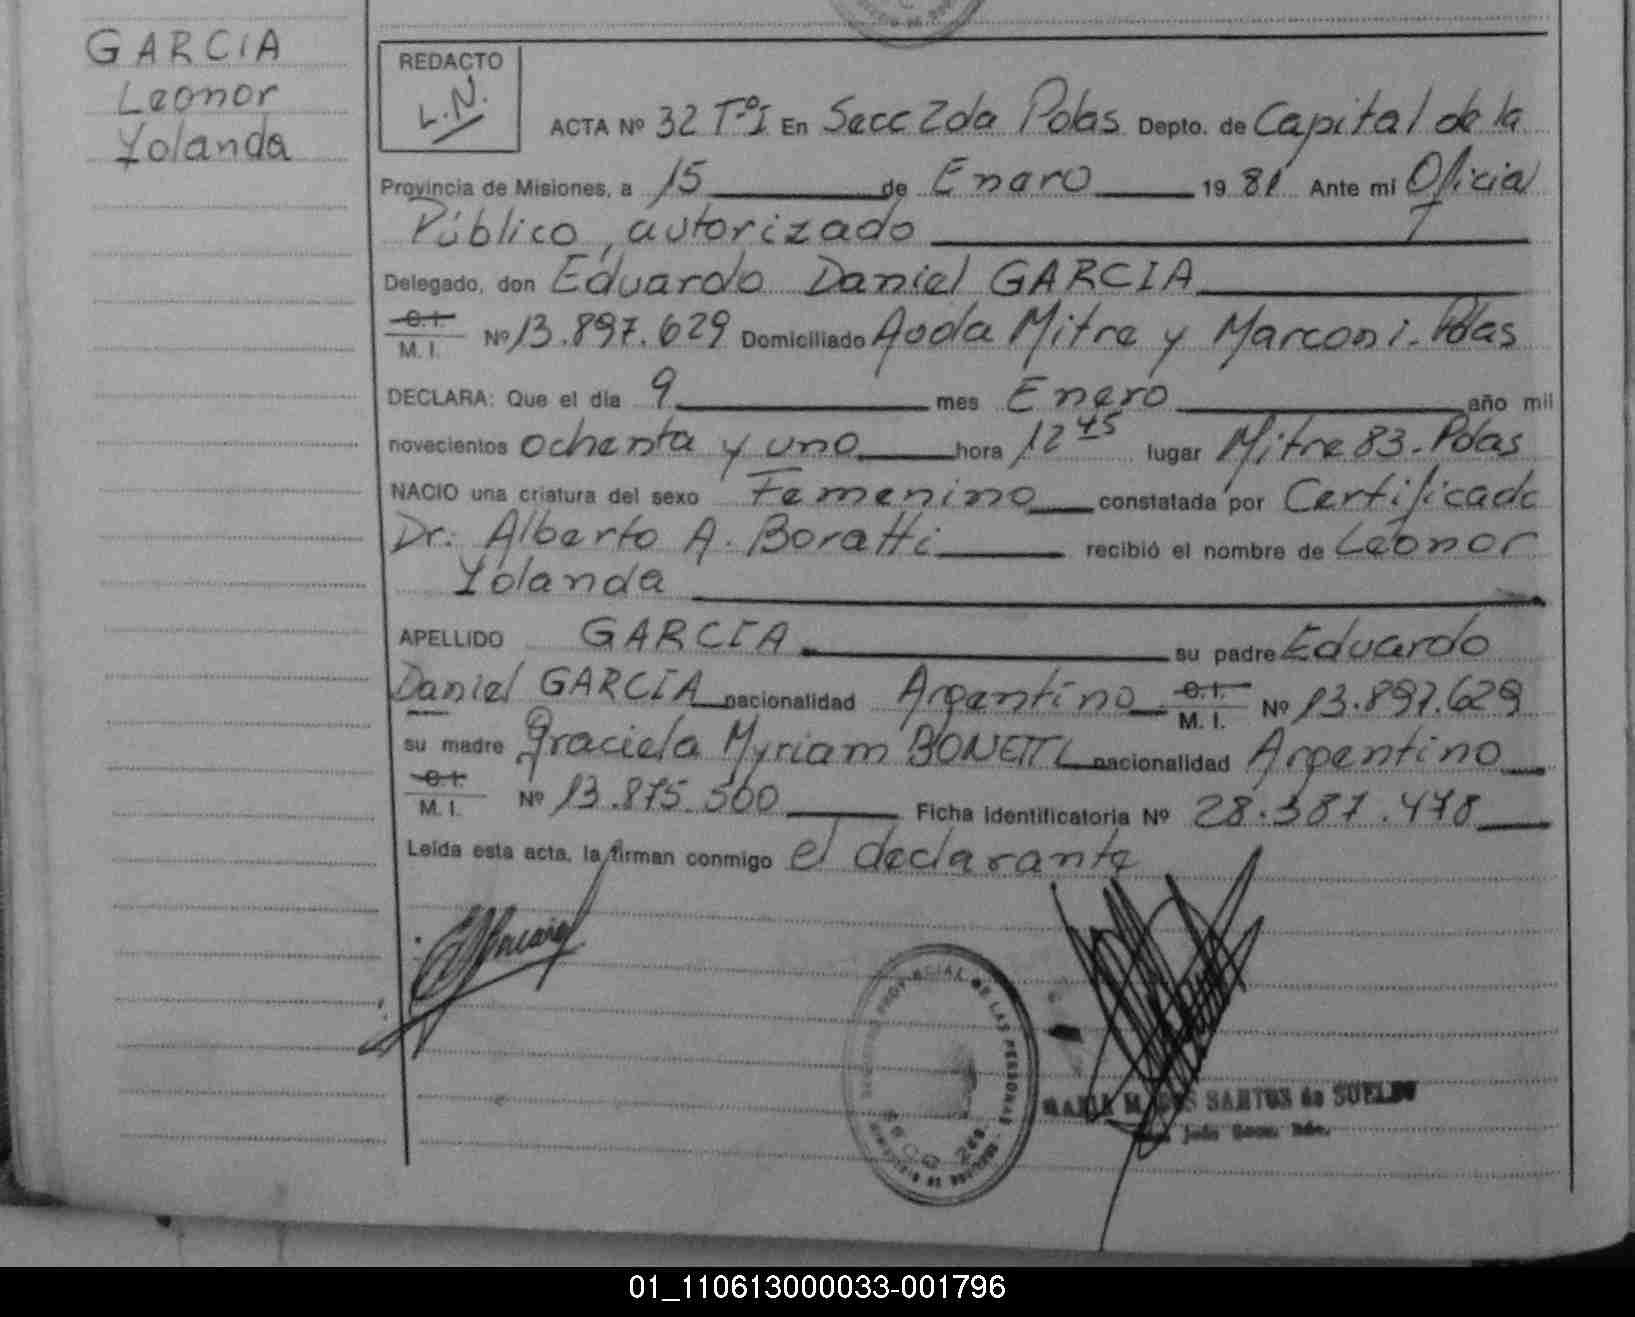 GARCIA
Leonor
Yolanda
REDACTO
L.N.
ACTA Nº 32 Tº I En Secc 2da Pdas Depto. de Capital de la
Provincia de Misiones, a 15 de Enero 19 81 Ante mi Oficial
Público, autorizado
Delegado, don Eduardo Daniel GARCIA
C.I.
M. I. Nº 13.897.629 Domiciliado Avda Mitre y Marconi - Pdas
DECLARA: Que el día 9 mes Enero año mil
novecientos ochenta y uno hora 12 45 lugar Mitre 83 - Pdas
NACIO una criatura del sexo Femenino constatada por Certificado
Dr. Alberto A. Boratti recibió el nombre de Leonor
Yolanda
APELLIDO GARCIA su padre Eduardo
Daniel GARCIA nacionalidad Argentino C.I. M. I. Nº 13.897.629
su madre Graciela Myriam BONETTI nacionalidad Argentino
C.I.
M. I. Nº 13.875.500 Ficha Identificatoria Nº 28.387.478
Leída esta acta, la firman conmigo el declarante
PROVINCIAL DE LAS PERSONAS
MARIA M. DOS SANTOS de SUELDO
01_110613000033-001796